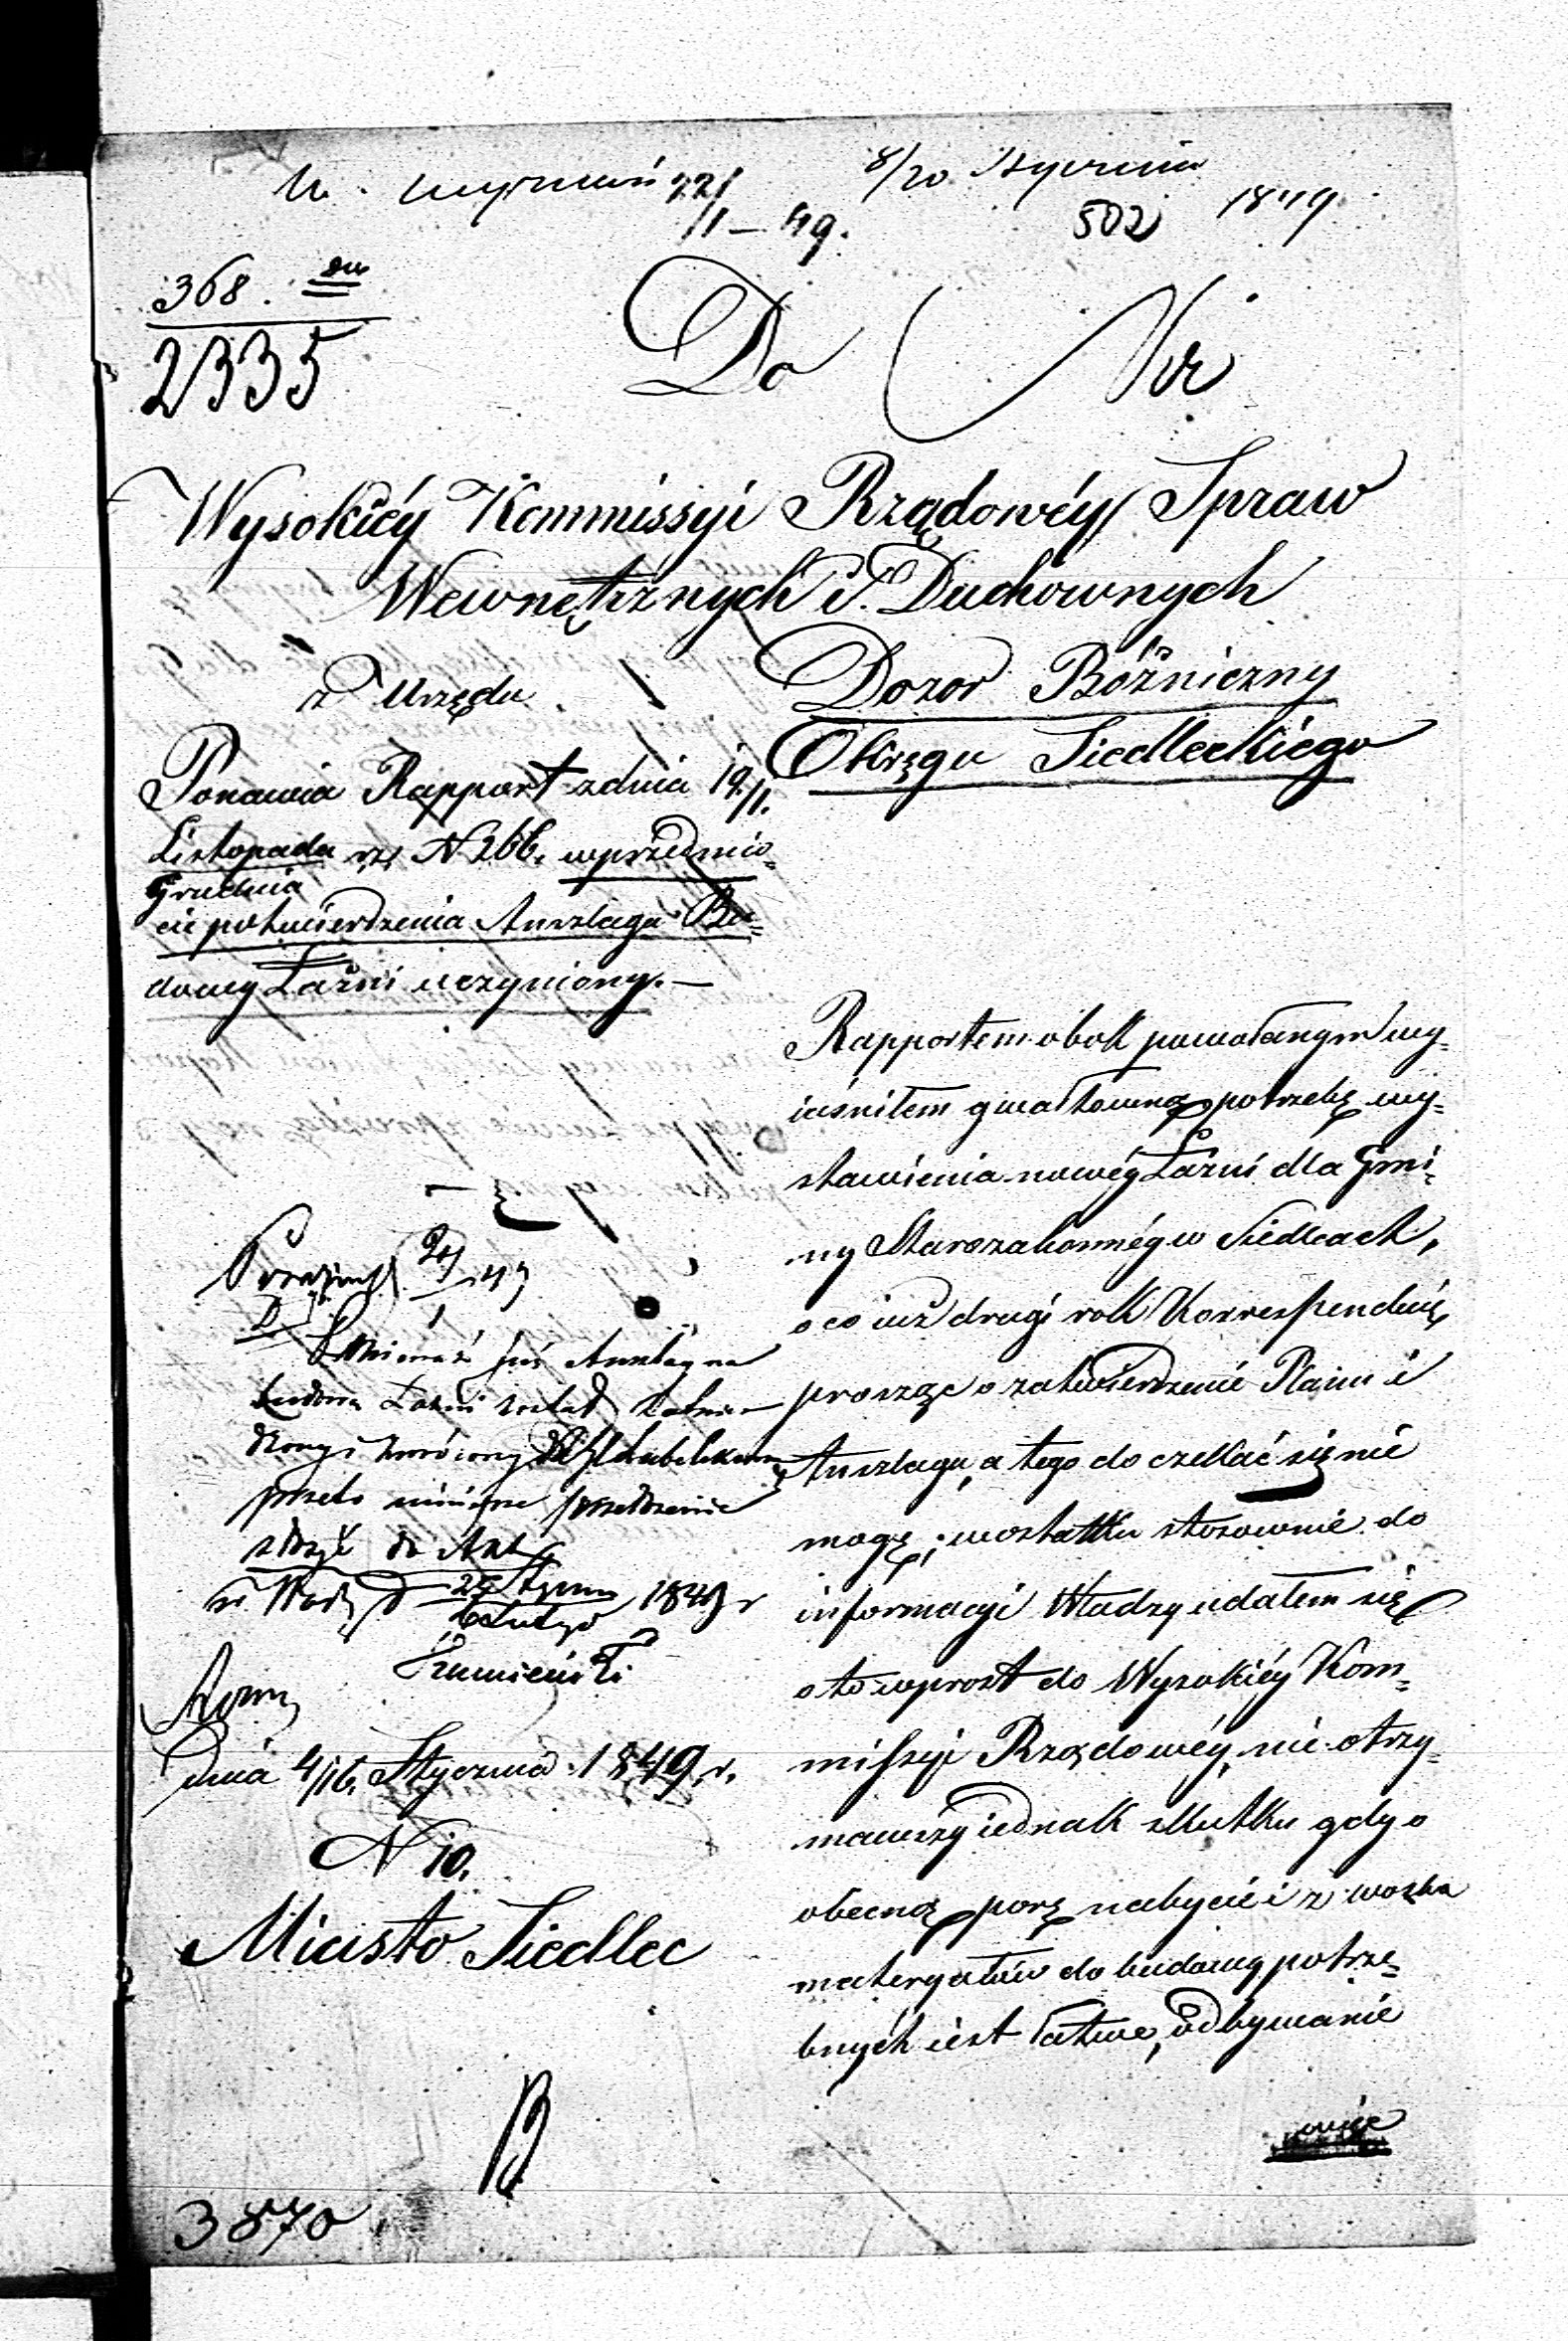 22/1 – 49.
8/20 Stycznia 1849
502
368.
2335
Do
Wysokiéy Kommissyi Rządowéy Spraw
Wewnętrznych i Duchownych
z Urzędu
Dozor Bóżniczny
Okręgu Siedleckiego
Ponawia Rapport z dnia 19/1.
Listopada
Grudnia
rz. N 266. wprzedmio=
cie potwierdzenia Anszlagu Bu=
dowy Łaźni uczyniony. —
Rapportem obok powołanym wy=
iaśniłem gwałtowną potrzebę wy=
stawienia nowéy Łaźni dla Gmi=
ny Starozakonnéy w Siedlcach,
o co iuż drugi rok Korrespenduię
prosząc o zatwierdzenie Planu i
Anszlagu, a tego doczekać się nie
mogę; wostatku stosownie do
informacyi Władzy udałem się
o to wprost do Wysokiéy Kom=
missyi Rządowéy, nie otrzy=
mawszy iednak skutku gdy o
obecną porę nabycie i zwozka
materyałów do budowy potrze=
bnych iest łatwe, odbywanie
więc
już Anszlag na
budowę Łaźni został zatwier
dzony i zwrócony
przeto niniejsze
złożyć do Akt
1849 r
dnia 4/16. Stycznia 1849. r.
N 10.
Miasto Siedlec
3870